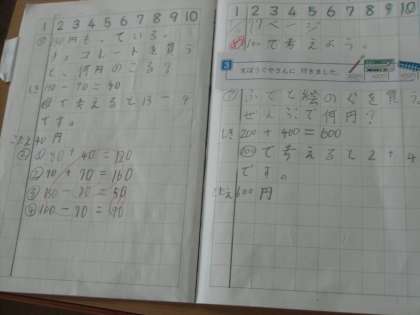 1 2 3 4 5 6 7 8 9 10
円もっている。
チョコレートを買う
と、何円のこる?
しき 130-90=40
⑩で考えると13-9
です。
こたえ 40円
① 80+40=120
② 90+70=160
④ 160-70=90
1 2 3 4 5 6 7 8 9 10
17ページ
100で考えよう。
3
文ぼうぐやさんに 行きました。
① ふでと絵のぐを買う
ぜんぶで何円?
しき 200+400=600
⑩⓪で考えると2+4
です。
こたえ 600円